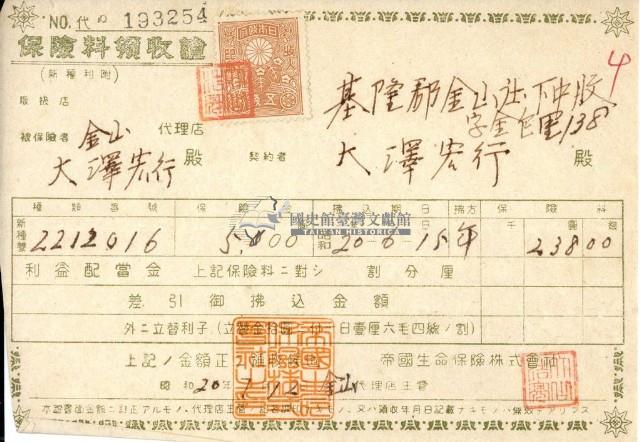 NO.代の 193254
保險料領收證
(新種利附)
取扱店
金山 代理店
被保險者 大澤宏行 殿
4
基隆郡金山社下中股
字金包里138
契約者 大澤宏行 殿
種類番號 保險 拂込期日 拂方 保險料
新種雙 2212016 5,000 昭和 20-6-15 年 23800
國史館臺灣文獻館
TAIWAN HISTORICA
利益配當金 上記保險料ニ對シ 割分厘
差引御拂込金額
外ニ立替利子(立替金拾圓ニ付 日壹厘六毛四線ノ割)
上記ノ金額正ニ領收候也 帝國生命保險株式會社
昭和20年7 12 金山 代理店主管